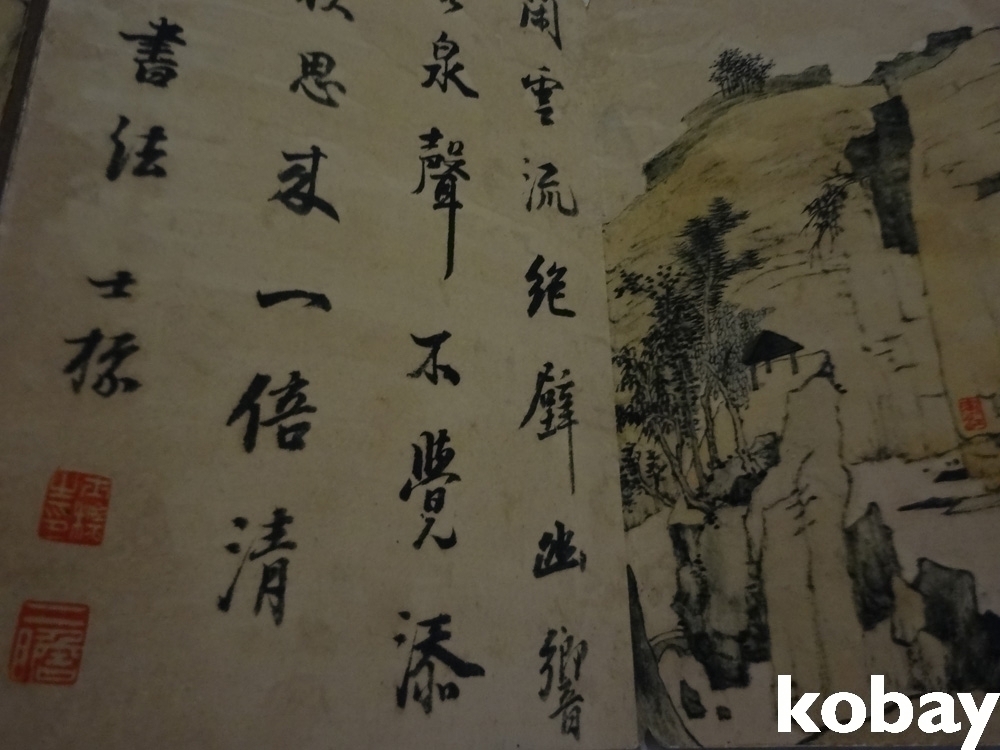 閑雲流絶壁幽響
泉聲不覺添
思來一倍清
書法
士標
二瞻
kobay